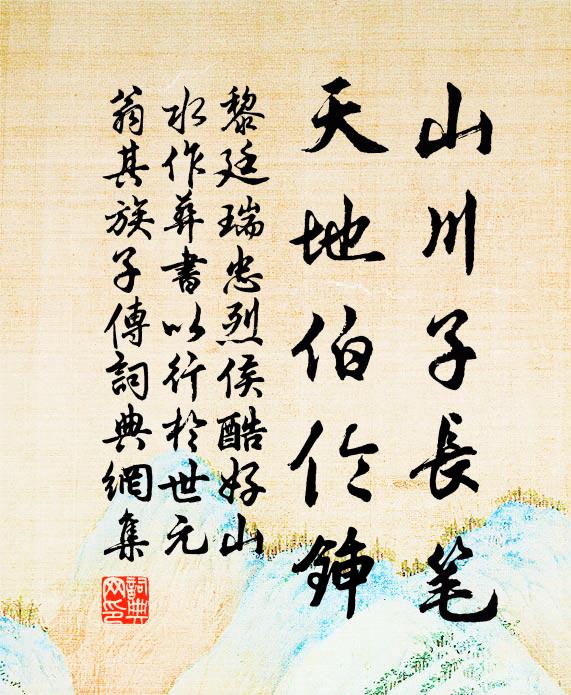 山川子長笔
天地伯伦鍤
黎廷瑞忠烈侯酷好山
水作葬書以行於世元
翁其族子傳詞典網集
詞典网印